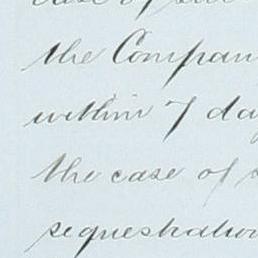 case of
the Compan
within 7 da
the case of
sequestratio